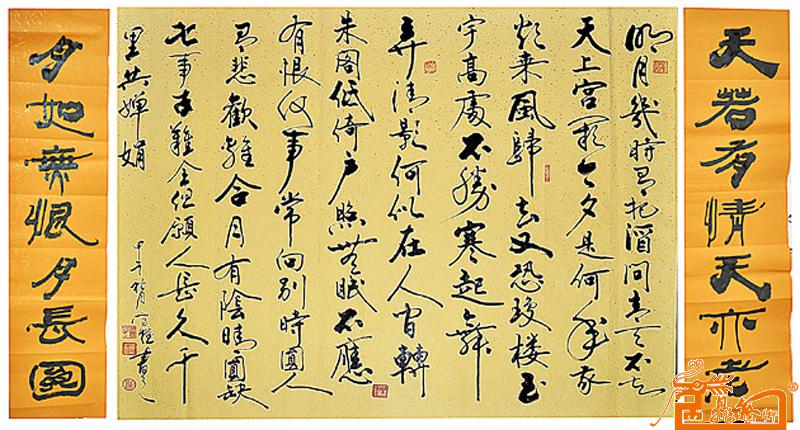 天若有情天亦老
明月幾時有把酒問青天不知
天上宮闕今夕是何年我
欲乘風歸去又恐瓊樓玉
宇高處不勝寒起舞
弄清影何似在人間轉
朱閣低倚户照無眠不應
有恨何事常向別時圓人
有悲歡離合月有陰晴圓缺
此事古難全但願人長久千
里共嬋娟
甲午
書
月如無恨月長圓